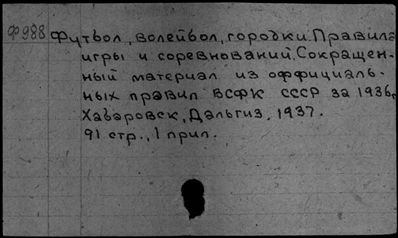 Ф988 Футбол, волейбол, городки. Правила
игры и соревнований. Сокращен-
ный материал из оффициаль-
ных правил ВСФК СССР за 1936г
Хабаровск, Дальгиз, 1937.
91 стр., 1 прил.